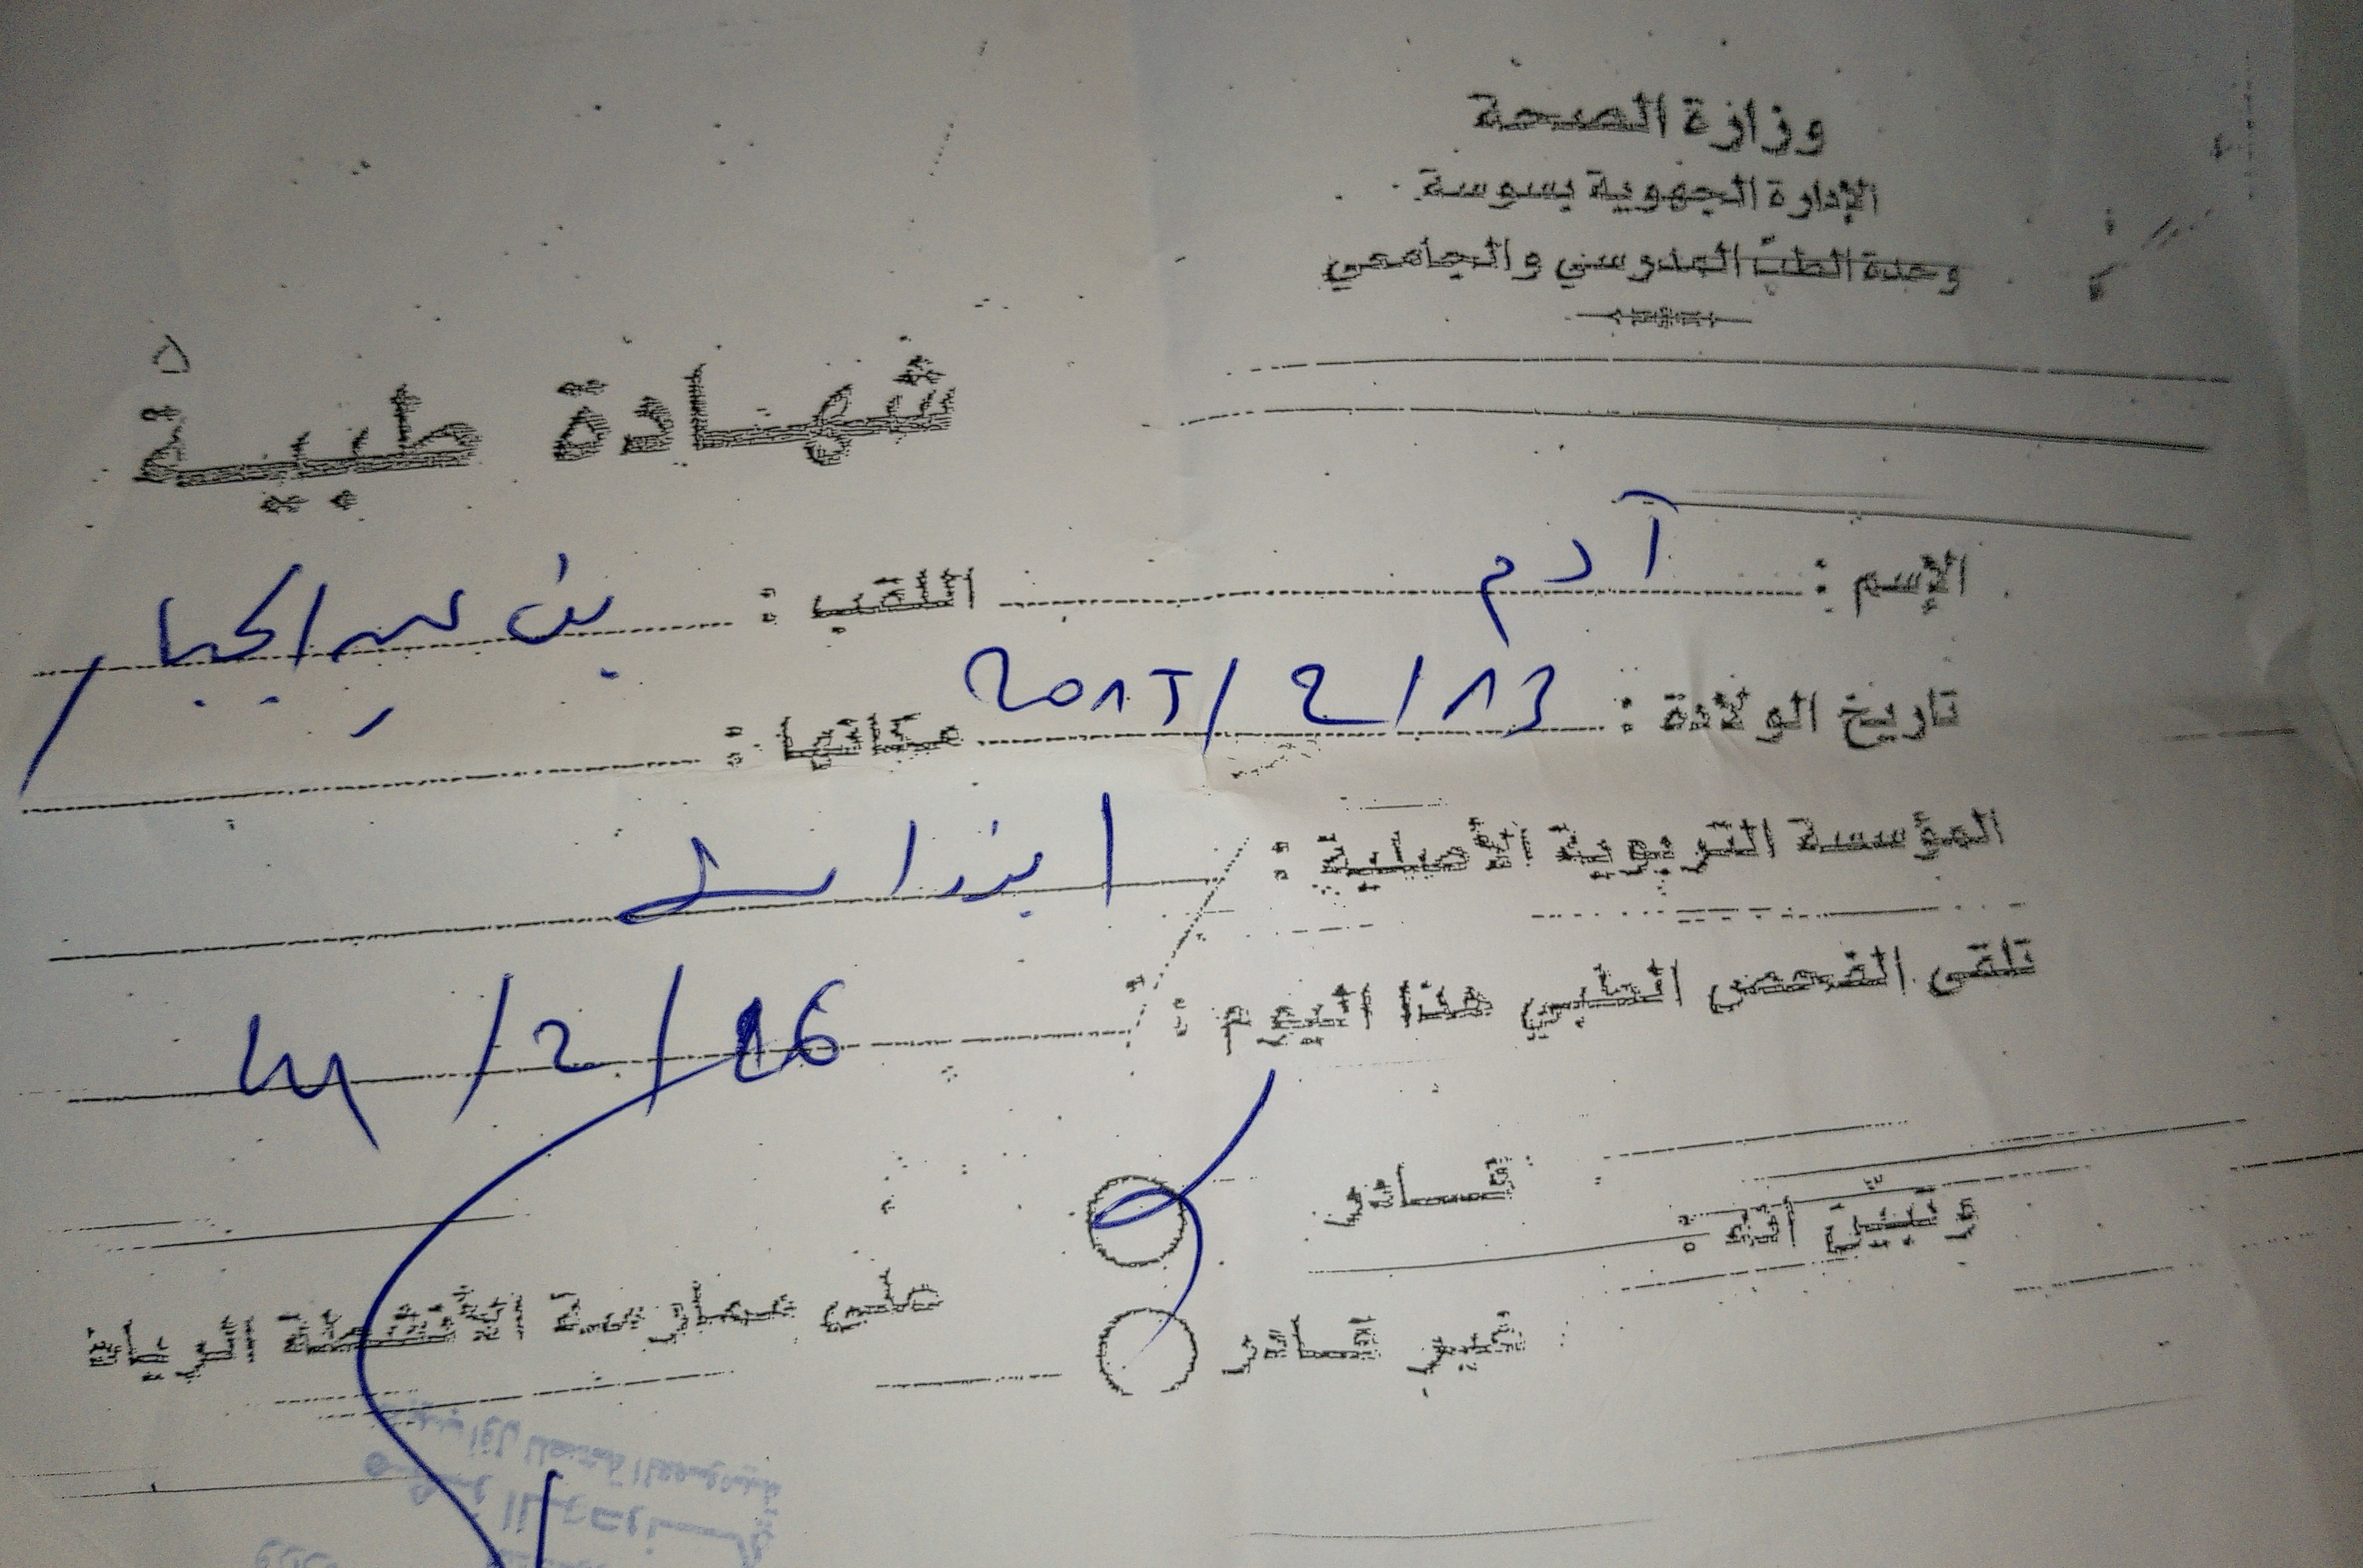 وزارة الصحة
الإدارة الجهوية بسوسة
وحدة الطبّ المدرسي والجامعي
شهادة طبية
الإسم : آدم اللقب : بن عبد الجبار
تاريخ الولادة : 13/2/2015 مكانها :
المؤسسة التربوية الأصلية :
تلقى الفحص الطبي هذا اليوم : 16/2/
وتبيّن أنه : قادر
غير قادر على ممارسة الأنشطة الرياض